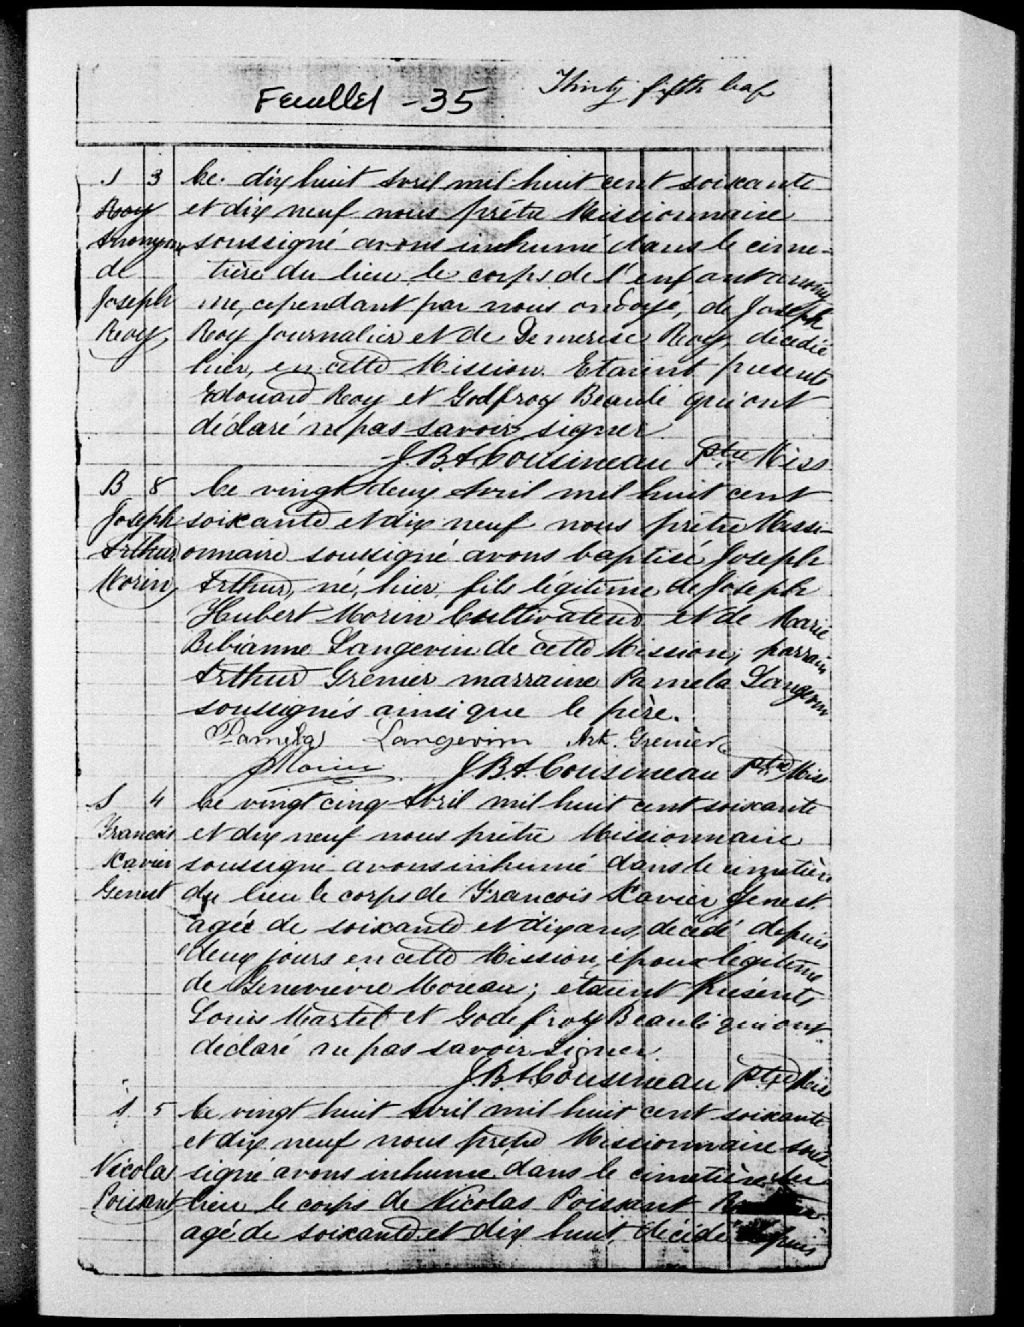 Feuillet - 35
Thirty fifth leaf
S 3 Le dix huit Avril mil huit cent soixante
Roy et dix neuf nous prêtre Missionnaire
Anonyme soussigné avons inhumé dans le cime-
de tière du lieu le corps de l'enfant anony
Joseph me, cependant par nous ondoyé, de Joseph
Roy Roy Journalier et de Demerise Roy, décédé
hier, en cette Mission. Etaient presents
Edouard Roy et Godfroy Beaulé qui ont
déclaré ne pas savoir signer
J.B.A. Cousineau Ptre Miss
B 8 Le vingt deux Avril mil huit cent
Joseph soixante et dix neuf nous prêtre Missi-
Arthur onnaire soussigné avons baptisé Joseph
Morin Arthur, né, hier, fils légitime de Joseph
Hubert Morin Cultivateur et de Marie
Bibianne Langevin de cette Mission; parrain
Arthur Grenier marraine Pamela Langevin
soussignés ainsi que le père.
Pamela Langevin Art. Grenier
J Morin J.B.A. Cousineau Ptre Miss
S 4 Le vingt cinq Avril mil huit cent soixante
Francois et dix neuf nous prêtre Missionnaire
Xavier soussigné avons inhumé dans le cimetière
Genest du lieu le corps de Francois Xavier Genest
agée de soixante et dix ans, décédé depuis
deux jours en cette Mission, époux légitime
de Genevieve Moreau; étaient présents
Louis Martel et Godefroy Beaulé qui ont
declaré ne pas savoir signer.
J.B.A. Cousineau Ptre Miss
S 5 Le vingt huit Avril mil huit cent soixante
et dix neuf nous prêtre Missionnaire sous
Nicolas signé avons inhumé dans le cimetière du
Poissant lieu le corps de Nicolas Poissant
agé de soixante et dix huit, décédé depuis